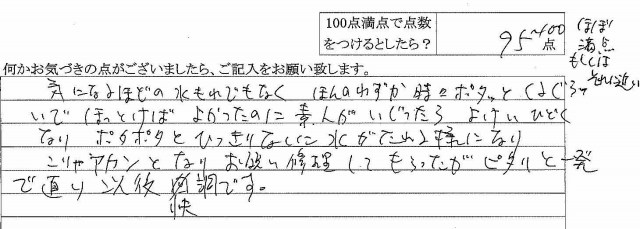 100点満点で点数
をつけるとしたら？
95～100点
ほぼ
満点
もしくは
それに近い
何かお気づきの点がございましたら、ご記入をお願い致します。
気になるほどの水もれでもなく ほんのわずか時々ポタッと
いで ほっとけば よかったのに 素人がいじったら よけいひどく
なり ポタポタと ひっきりなしに 水がたれる様になり
こりゃアカンとなり お願い修理してもらったが ピタリと一発
で直り 以後 快調です。